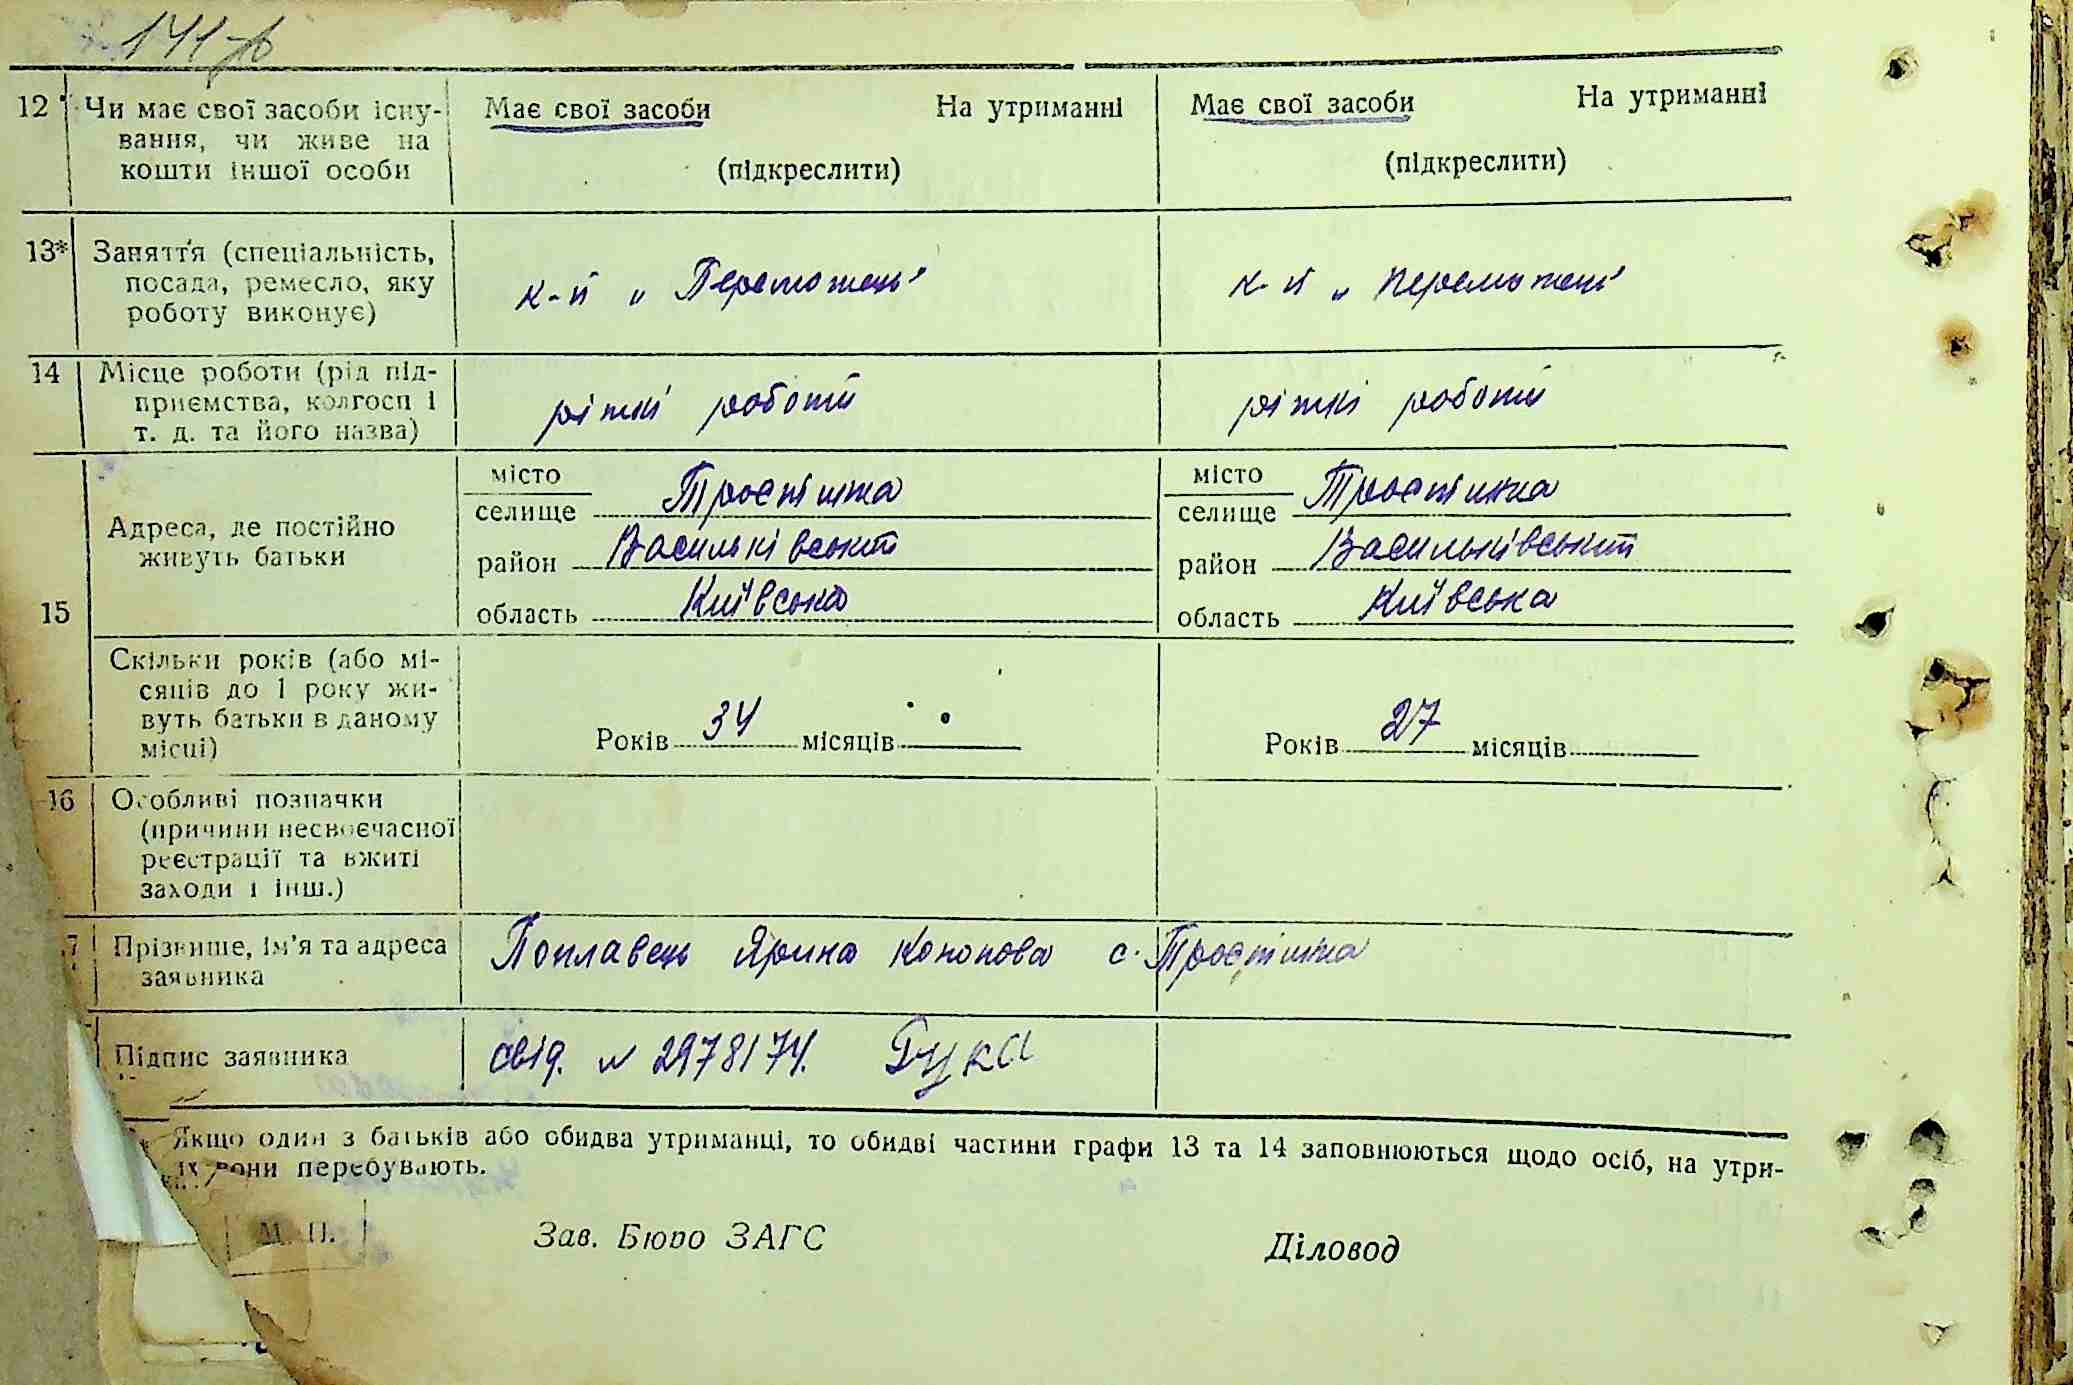 141
12 Чи має свої засоби існу- Має свої засоби На утриманні Має свої засоби На утриманні
вання, чи живе на
кошти іншої особи (підкреслити) (підкреслити)
13* Заняття (спеціальність,
посада, ремесло, яку к-п „Переможець" к-п „Переможець"
роботу виконує)
14 Місце роботи (рід під-
приємства, колгосп і ріжні роботи ріжні роботи
т. д. та його назва)
місто місто
Адреса, де постійно селище Тростинка селище Тростинка
живуть батьки район Васильківський район Васильківський
15 область Київська область Київська
Скільки років (або мі-
сяців до 1 року жи-
вуть батьки в даному Років 34 місяців Років 27 місяців
місці)
16 Особливі позначки
(причини несвоєчасної
реєстрації та вжиті
заходи і інш.)
7 Прізвище, ім'я та адреса Поплавець Ярина Кононова с. Тростинка
заявника
Підпис заявника свід. № 2978174. Гука
* Якщо один з батьків або обидва утриманці, то обидві частини графи 13 та 14 заповнюються щодо осіб, на утри-
їх вони перебувають.
М. П. Зав. Бюро ЗАГС Діловод